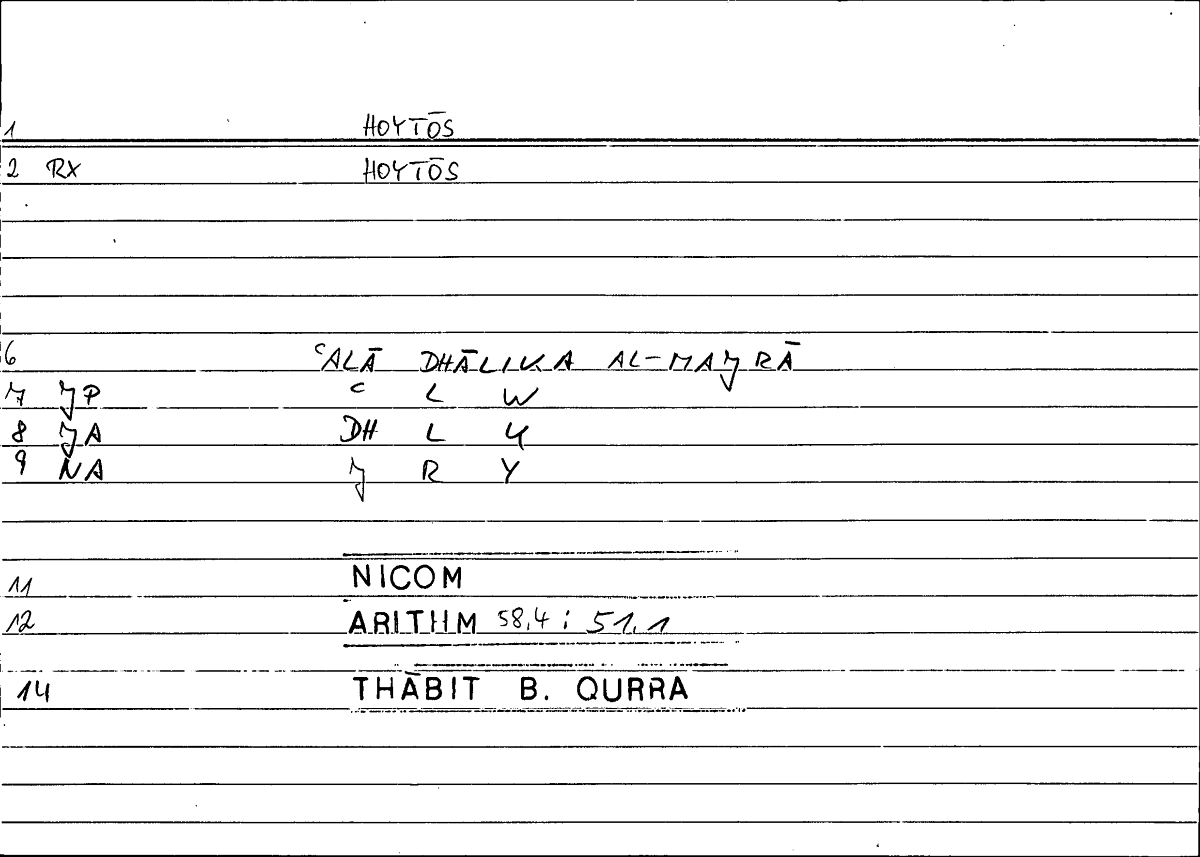 1 HOYTŌS
2 RX HOYTŌS
6 ᶜALĀ DHĀLIKA AL-MAJRĀ
7 JP ᶜ L W
8 JA DH L Y
9 NA J R Y
11 NICOM
12 ARITHM 58,4 ; 51,1
14 THĀBIT B. QURRA